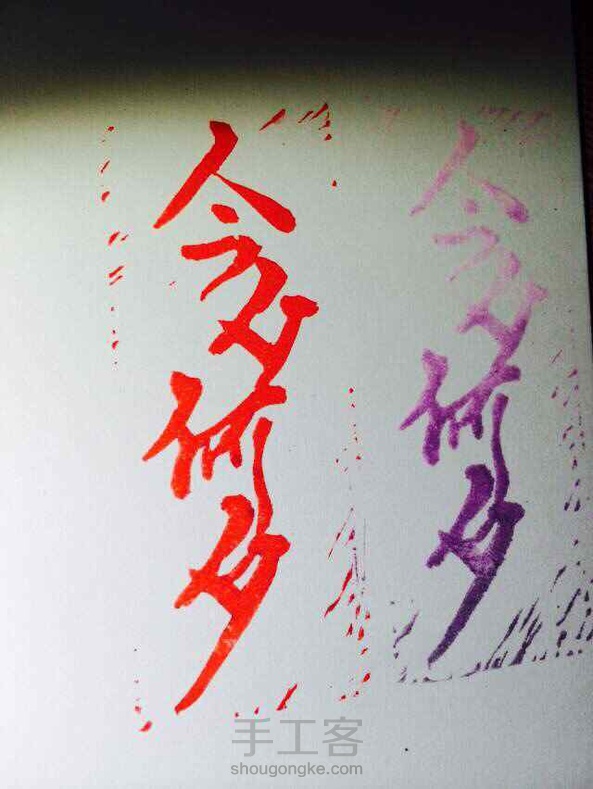 今夕何夕
今夕何夕
手工客
shougongke.com